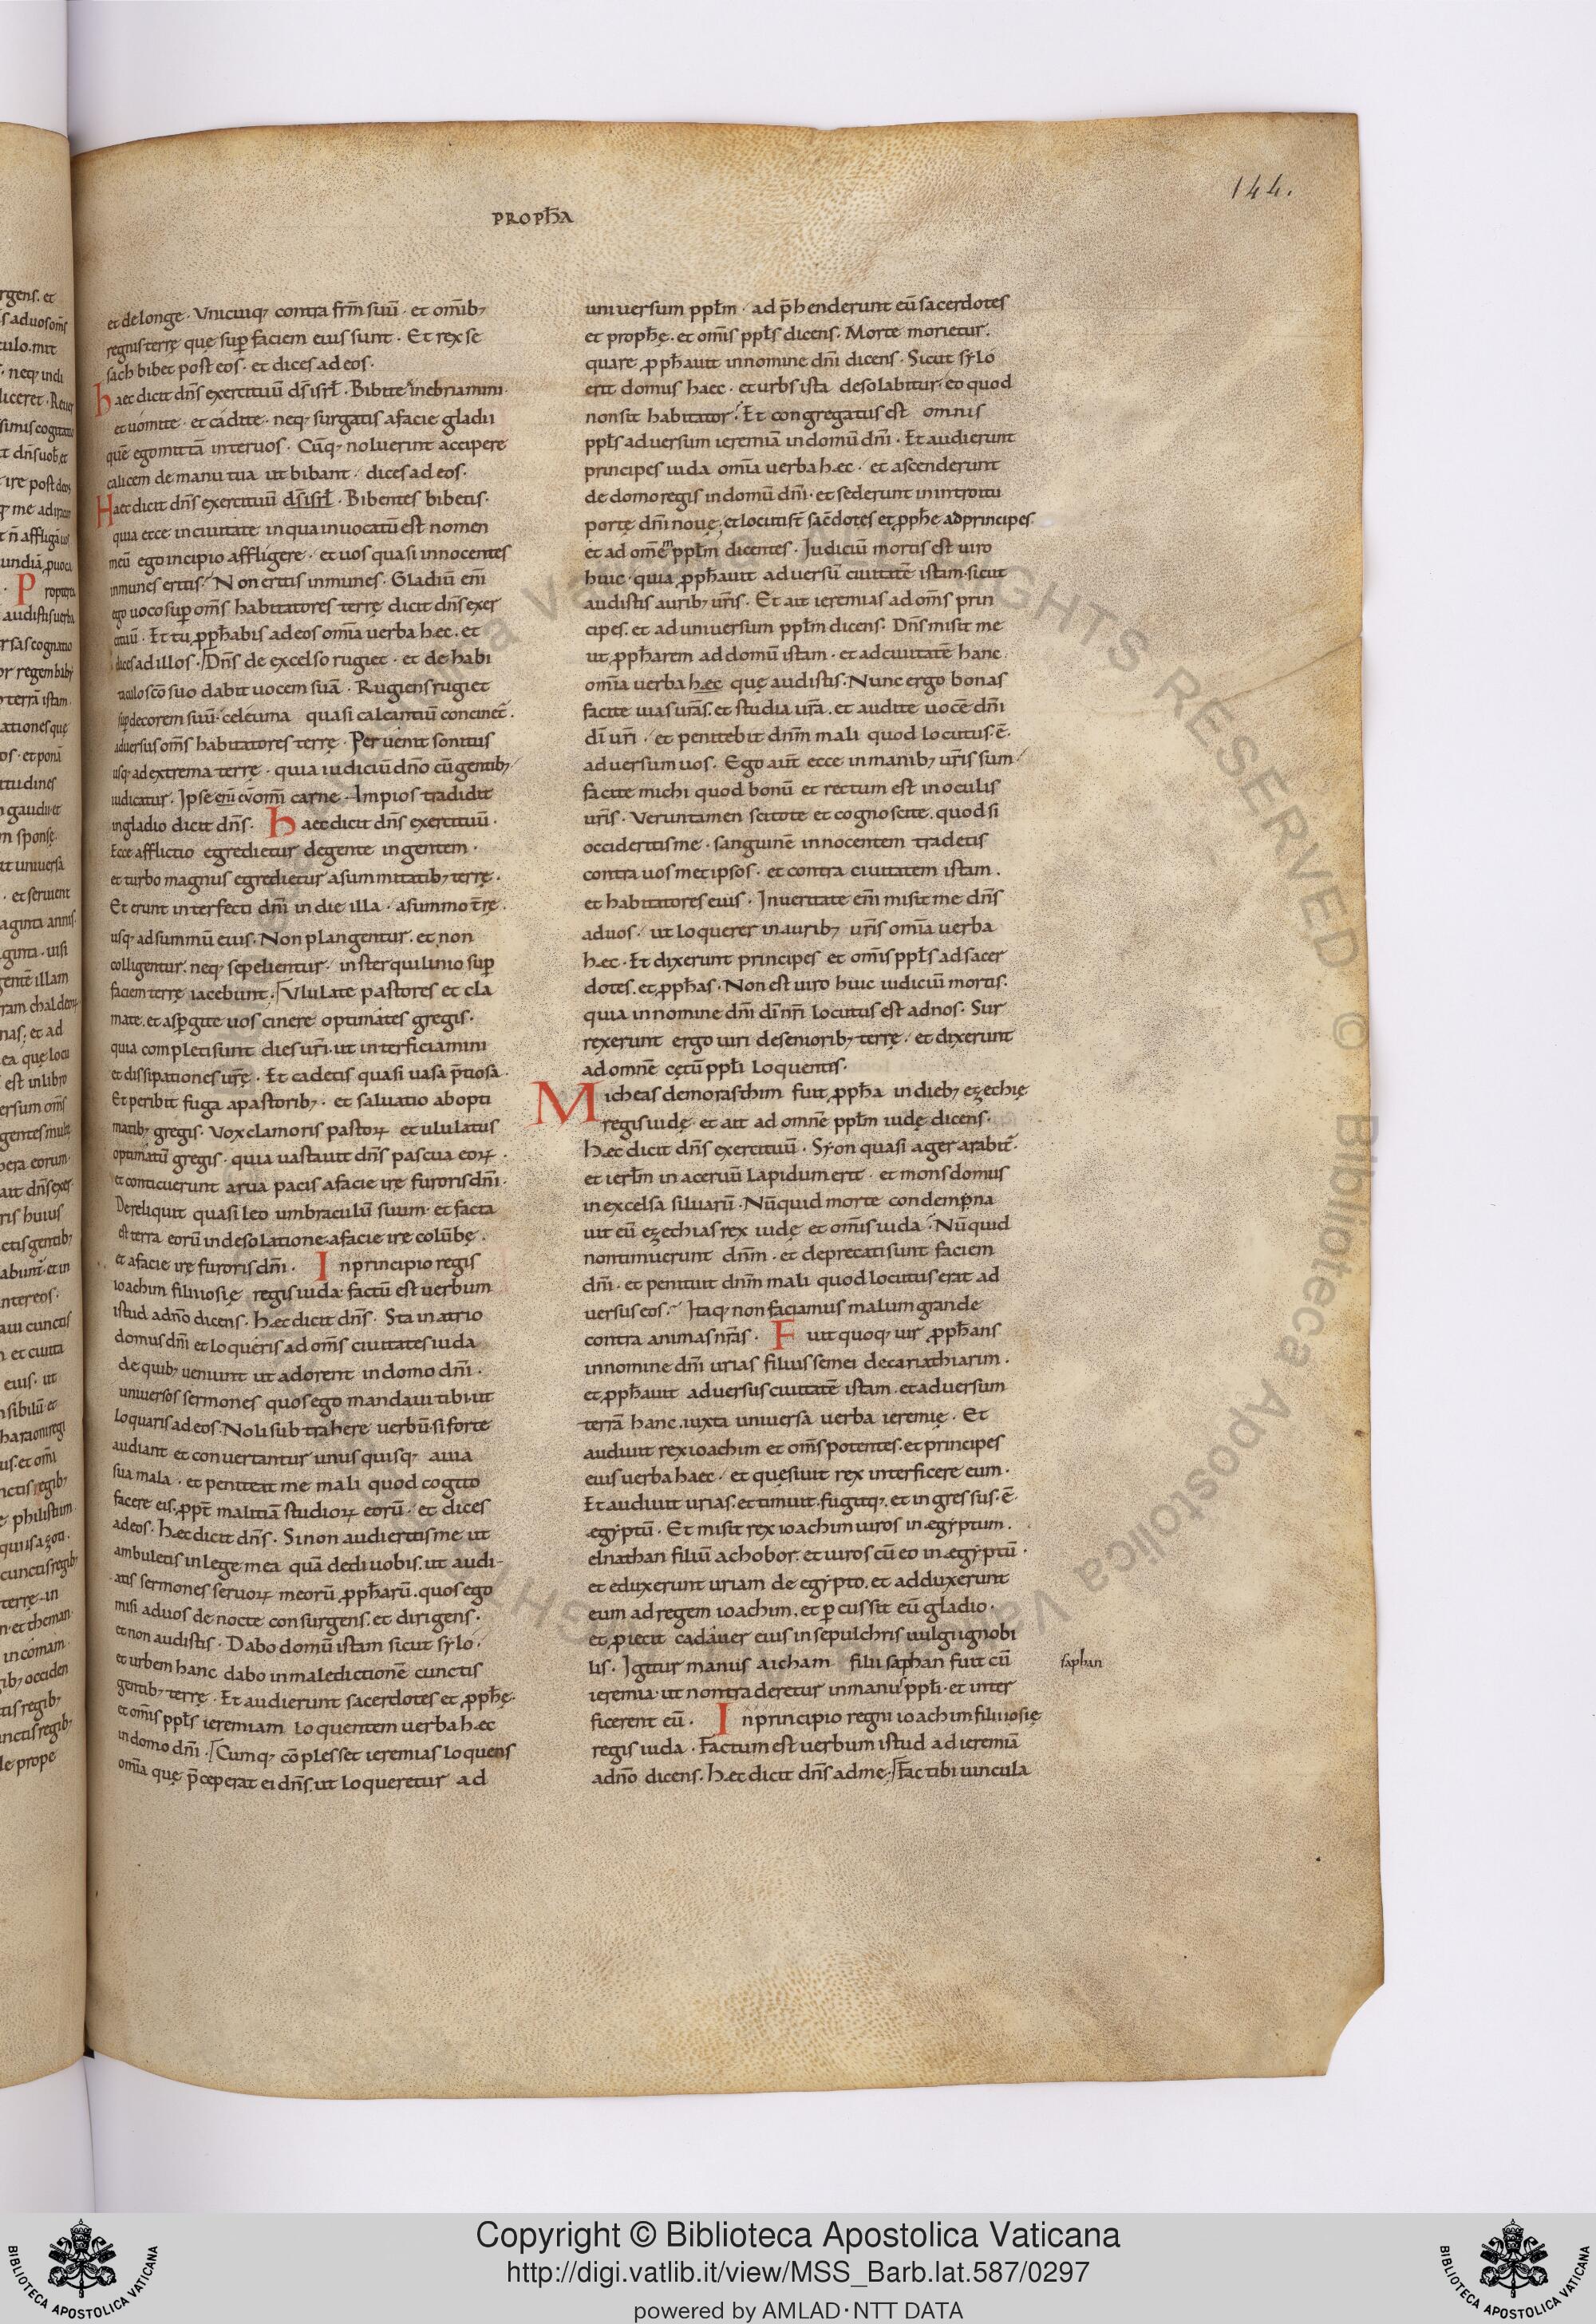 144.
PROPH̄A
et delonge · Vnicuiq; contra frm̄ suū · et om̄ib;
regnis terrę quę sup̄ faciem eius sunt · Et rex se
sach bibet post eos · et dices ad eos ·
haec dicit dn̄s exercituū ds̄ isrl̄ · Bibite inebriamini ·
et uomite · et cadite · neq; surgatis a facie gladii
quē ego mittā inter uos · Cūq; noluerint accipere
calicem de manu tua ut bibant · dices ad eos ·
Haec dicit dn̄s exercituū ds̄ isrl̄ · Bibentes bibetis ·
quia ecce in ciuitate in qua inuocatū est nomen
meū ego incipio affligere · et uos quasi innocentes
inmunes eritis · Non eritis inmunes · Gladiū em̄
ego uoco sup̄ om̄s habitatores terrę dicit dn̄s exer
cituū · Et tu ꝓph̄abis ad eos om̄ia uerba hæc · et
dices ad illos · Dn̄s de excelso rugiet · et de habi
taculo sc̄o suo dabit uocem suā · Rugiens rugiet
sup̄ decorem suū · celeuma quasi calcantiū concinet̄ ·
aduersus om̄s habitatores terrę · Peruenit sonitus
usq; ad extrema terrę · quia iudiciū dn̄o cū gentib;
iudicatur · Ipse em̄ cū om̄i carne · Impios tradidit
in gladio dicit dn̄s · haec dicit dn̄s exercituū ·
Ecce afflictio egredietur de gente in gentem ·
et turbo magnus egredietur a summitatib; terrę ·
Et erunt interfecti dn̄i in die illa · a summo t̄rę ·
usq; ad summū eius · Non plangentur · et non
colligentur · neq; sepelientur · in sterquilinio sup̄
faciem terrę iacebunt · Vlulate pastores et cla
mate · et asꝑgite uos cinere optimates gregis ·
quia completi sunt dies ur̄i · ut interficiamini
et dissipationes ur̄ę · Et cadetis quasi uasa p̄tiosa ·
Et peribit fuga a pastorib; · et saluatio ab opti
matib; gregis · Vox clamoris pastoꝝ et ululatus
optimatū gregis · quia uastauit dn̄s pascua eoꝝ ·
et conticuerunt arua pacis a facie irę furoris dn̄i ·
Dereliquit quasi leo umbraculū suum · et facta
est terra eorū in desolatione · a facie irę colūbę ·
et a facie irę furoris dn̄i · In principio regis
ioachim filii iosię regis iuda · factū est uerbum
istud a dn̄o dicens · Hæc dicit dn̄s · Sta in atrio
domus dn̄i et loqueris ad om̄s ciuitates iuda
de quib; ueniunt ut adorent in domo dn̄i ·
uniuersos sermones quos ego mandaui tibi · ut
loquaris ad eos · Noli subtrahere uerbū · si forte
audiant et conuertantur unusquisq; a uia
sua mala · et peniteat me mali quod cogito
facere eis · ꝓpt̄ malitiā studioꝝ eorū · et dices
ad eos · Hæc dicit dn̄s · Si non audieritis me ut
ambuletis in lege mea quā dedi uobis · ut audi-
atis sermones seruoꝝ meorū ꝓph̄arū · quos ego
misi ad uos de nocte consurgens · et dirigens ·
et non audistis · Dabo domū istam sicut sylo ·
et urbem hanc dabo in maledictionē cunctis
gentib; terrę · Et audierunt sacerdotes et ꝓph̄ę ·
et om̄is ppl̄s ieremiam loquentem uerba hæc
in domo dn̄i · Cumq; cōplesset ieremias loquens
om̄ia quę p̄ceperat ei dn̄s · ut loqueretur ad
uniuersum ppl̄m · adp̄henderunt eū sacerdotes
et proph̄ę · et om̄is ppl̄s dicens · Morte morietur ·
quare ꝓph̄auit in nomine dn̄i dicens · Sicut sylo
erit domus haec · et urbs ista desolabitur · eo quod
non sit habitator · Et congregatus est omnis
ppl̄s aduersum ieremiā in domū dn̄i · Et audierunt
principes iuda om̄ia uerba hæc · et ascenderunt
de domo regis in domū dn̄i · et sederunt in introitu
portę dn̄i nouę · et locuti st̄ sac̄dotes et ꝓph̄e ad principes ·
et ad om̄em ppl̄m dicentes · Iudiciū mortis est uiro
huic · quia ꝓph̄auit aduersū ciuitatē istam · sicut
audistis aurib; ur̄is · Et ait ieremias ad om̄s prin
cipes · et ad uniuersum ppl̄m dicens · Dn̄s misit me
ut ꝓph̄arem ad domū istam · et ad ciuitatē hanc
om̄ia uerba hæc quę audistis · Nunc ergo bonas
facite uias ur̄as · et studia ur̄a · et audite uocē dn̄i
dī ur̄i · et penitebit dn̄m mali quod locutus · ē ·
aduersum uos · Ego aut̄ ecce in manib; ur̄is sum
facite michi quod bonū et rectum est in oculis
ur̄is · Veruntamen scitote et cognoscite · quod si
occideritis me · sanguinē innocentem tradetis
contra uosmetipsos · et contra ciuitatem istam ·
et habitatores eius · In ueritate em̄ misit me dn̄s
ad uos · ut loquerer in aurib; ur̄is om̄ia uerba
hæc · Et dixerunt principes et om̄is ppl̄s ad sacer
dotes · et ꝓph̄as · Non est uiro huic iudiciū mortis ·
quia in nomine dn̄i dī nr̄i locutus est ad nos · Sur
rexerunt ergo uiri de seniorib; terrę · et dixerunt
ad omnē cętū ppl̄i loquentis ·
Micheas de morasthim fuit ꝓph̄a in dieb; ezechię
regis iudę · et ait ad omnē ppl̄m iudę dicens ·
Hæc dicit dn̄s exercituū · Syon quasi ager arabit̄ ·
et ierl̄m in aceruū lapidum erit · et mons domus
in excelsa siluarū · Nūquid morte condempna
uit eū ezechias rex iudę et om̄is iuda · Nūquid
non timuerunt dn̄m · et deprecati sunt faciem
dn̄i · et penituit dn̄m mali quod locutus erat ad
uersus eos · Itaq; non faciamus malum grande
contra animas nr̄as · Fuit quoq; uir ꝓph̄ans
in nomine dn̄i urias filius semei de cariathiarim ·
et ꝓph̄auit aduersus ciuitatē istam · et aduersum
terrā hanc · iuxta uniuersa uerba ieremię · Et
audiuit rex ioachim et om̄s potentes · et principes
eius uerba haec · et quęsiuit rex interficere eum ·
Et audiuit urias · et timuit · fugitq; · et ingressus · ē ·
ægyptū · Et misit rex ioachim uiros in ægyptum ·
elnathan filiū achobor · et uiros cū eo in ægyptū ·
et eduxerunt uriam de egypto · et adduxerunt
eum ad regem ioachim · et ꝑcussit eū gladio ·
et ꝓiecit cadauer eius in sepulchris uulgi ignobi
lis · Igitur manus aicham filii saphan fuit cū
saphan
ieremia · ut non traderetur in manū ppl̄i · et inter
ficerent eū · In principio regni ioachim filii iosię
regis iuda · Factum est uerbum istud ad ieremiā
a dn̄o dicens · Hæc dicit dn̄s ad me · Fac tibi uincula
Copyright © Biblioteca Apostolica Vaticana
http://digi.vatlib.it/view/MSS_Barb.lat.587/0297
powered by AMLAD·NTT DATA
BIBLIOTECA APOSTOLICA VATICANA
BIBLIOTECA APOSTOLICA VATICANA